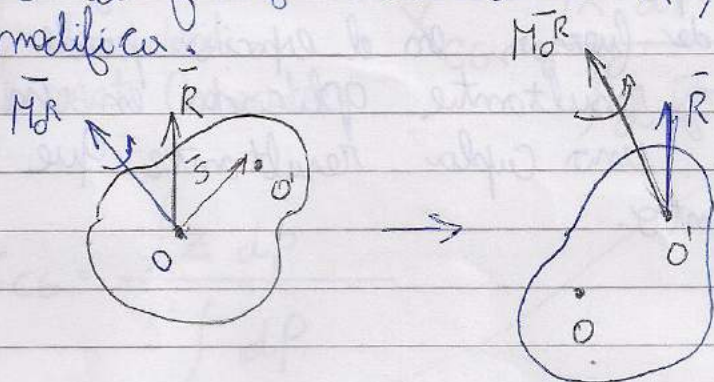 modifica.
M̄oᴿ
R̄
S̄
O'
O
M̄oᴿ
R̄
O'
O